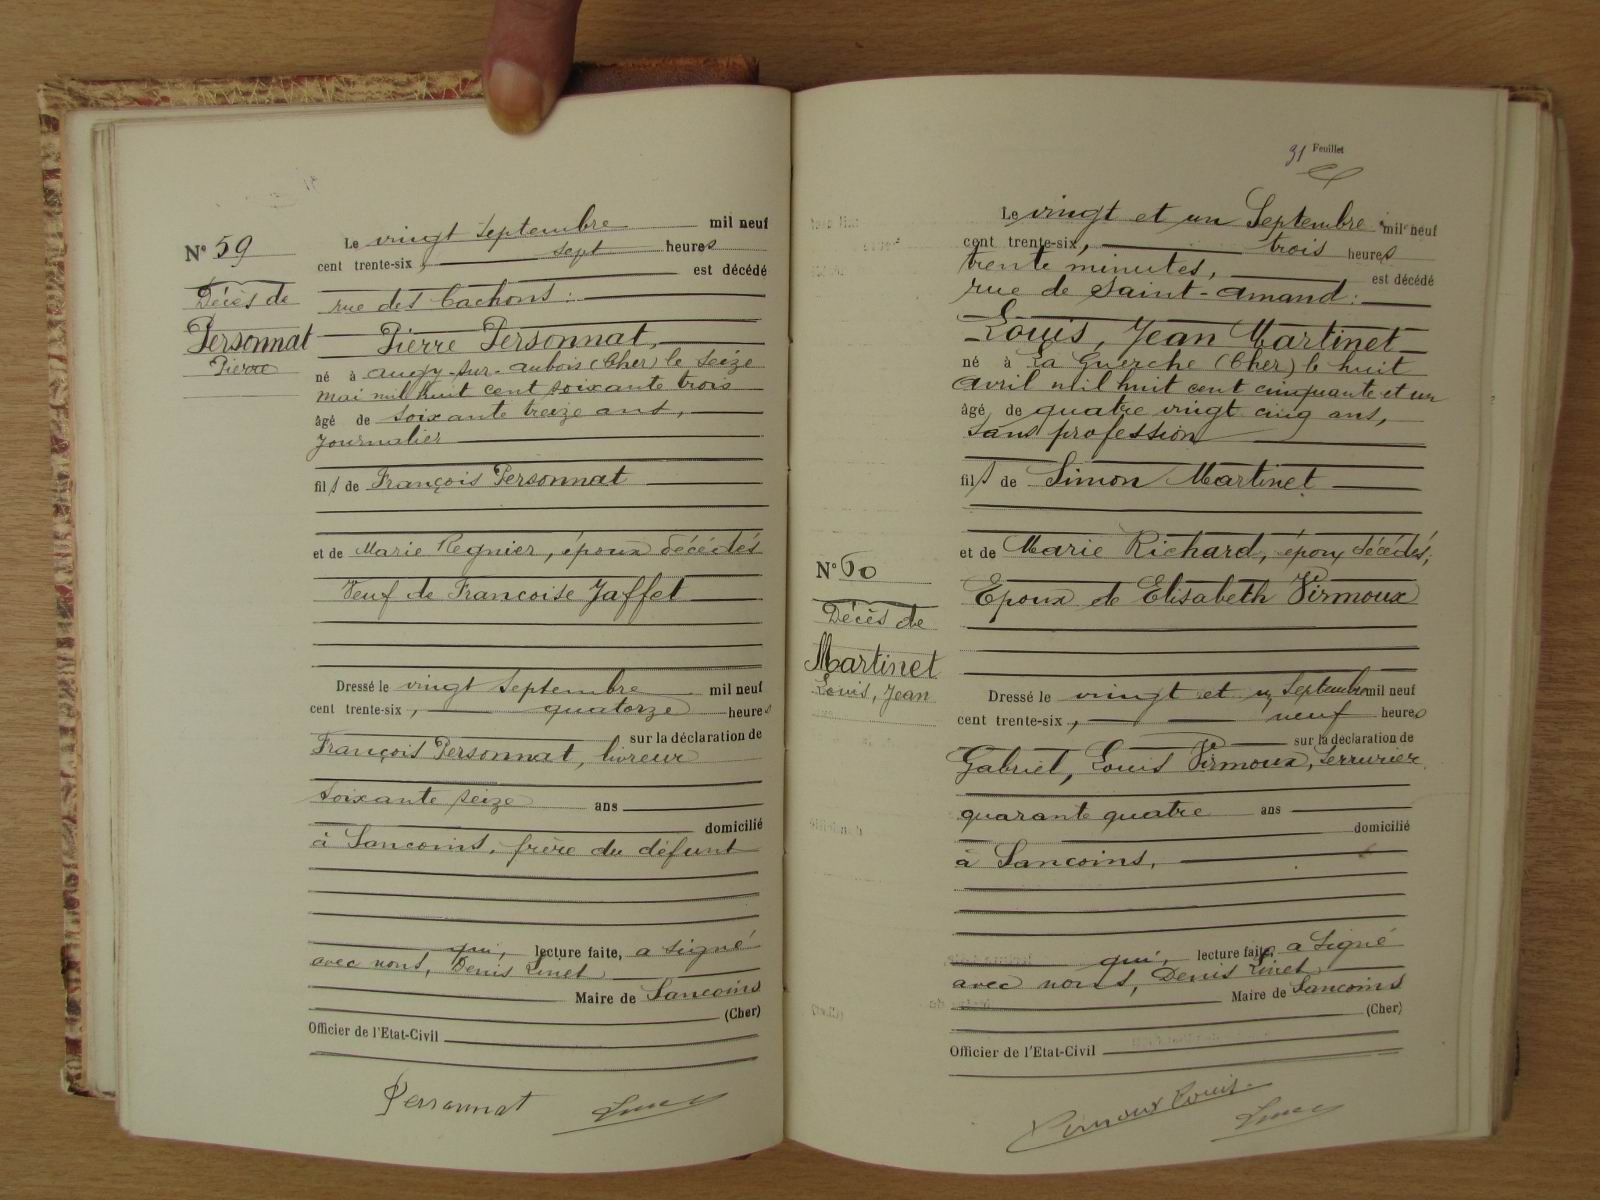 N° 59
Décès de
Personnat
Pierre
Le vingt Septembre mil neuf
cent trente-six, sept heures
est décédé
rue des Cachons :
Pierre Personnat,
né à Augy-sur-Aubois (Cher) le seize
mai mil huit cent soixante trois
âgé de soixante treize ans,
journalier
fils de François Personnat
et de Marie Regnier, époux décédés
Veuf de Francoise Jaffet
Dressé le vingt Septembre mil neuf
cent trente-six, quatorze heures
sur la déclaration de
François Personnat, livreur
soixante seize ans
domicilié
à Sancoins, frère du défunt
qui, lecture faite, a signé
avec nous, Denis Linet
Maire de Sancoins
(Cher)
Officier de l'Etat-Civil
Personnat
31 Feuillet
N° 60
Décès de
Martinet
Louis, Jean
Le vingt et un Septembre mil neuf
cent trente-six, trois heures
trente minutes,
est décédé
rue de Saint-Amand :
Louis, Jean Martinet
né à La Guerche (Cher) le huit
avril mil huit cent cinquante et un
âgé de quatre vingt cinq ans,
sans profession
fils de Simon Martinet
et de Marie Richard, époux décédés,
Epoux de Elisabeth Virmoux
Dressé le vingt et un Septembre mil neuf
cent trente-six, neuf heures
sur la déclaration de
Gabriel, Louis Virmoux, serrurier
quarante quatre ans
domicilié
à Sancoins,
qui, lecture faite, a signé
avec nous, Denis Linet
Maire de Sancoins
(Cher)
Officier de l'Etat-Civil
Virmoux Louis